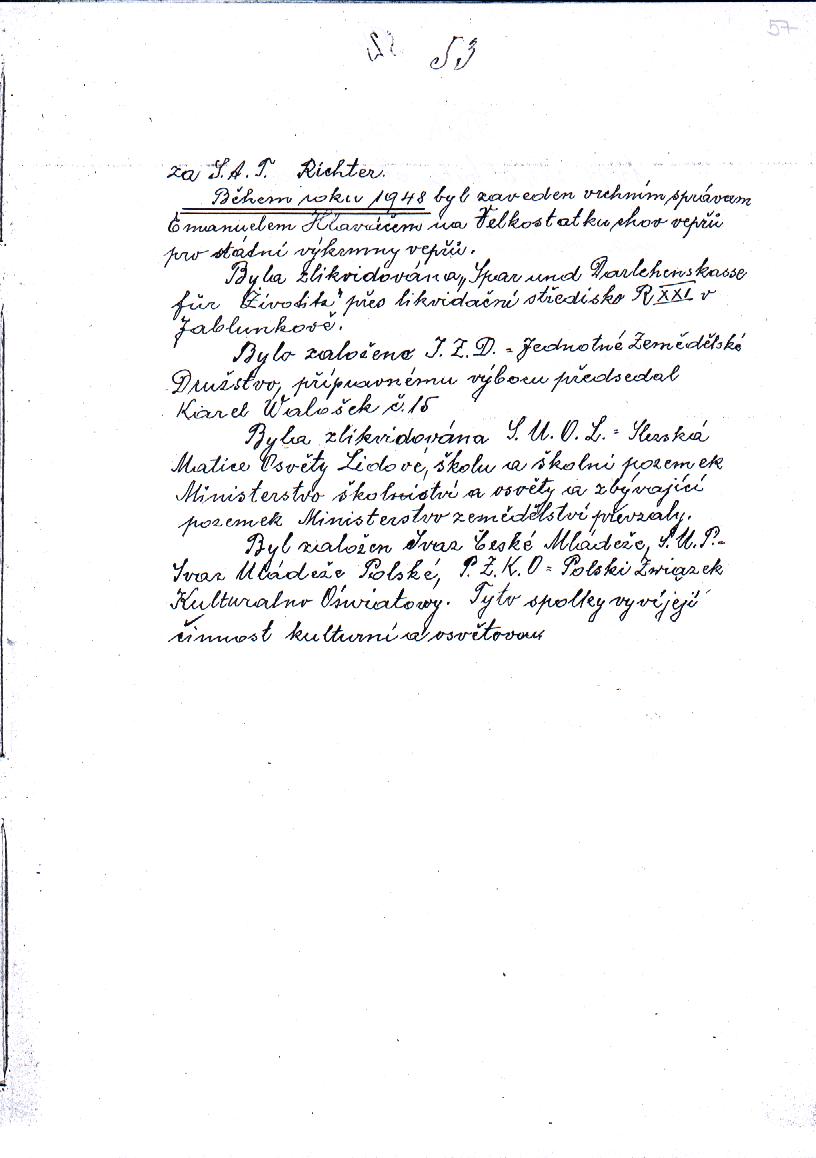 57
53
za S. A. T. Richter.
Během roku 1948 byl zaveden vrchním správcem
Emanuelem Hlaváčem na Velkostatku chov vepřů
pro státní výkrmny vepřů.
Byla zlikvidována „Spar und Darlehenskasse
für Životitz" přes likvidační středisko R XXI v
Jablunkově.
Bylo založeno J. Z. D. = Jednotné Zemědělské
Družstvo, přípravnému výboru předsedal
Karel Walošek č. 15
Byla zlikvidována S. M. O. L. = Slezská
Matice Osvěty Lidové, školu a školní pozemek
Ministerstvo školství a osvěty a zbývající
pozemek Ministerstvo zemědělství převzaly.
Byl založen Svaz České Mládeže, S. M. P. -
Svaz Mládeže Polské, P. Z. K. O = Polski Związek
Kulturalno Oświatowy. Tyto spolky vyvíjejí
činnost kulturní a osvětovou